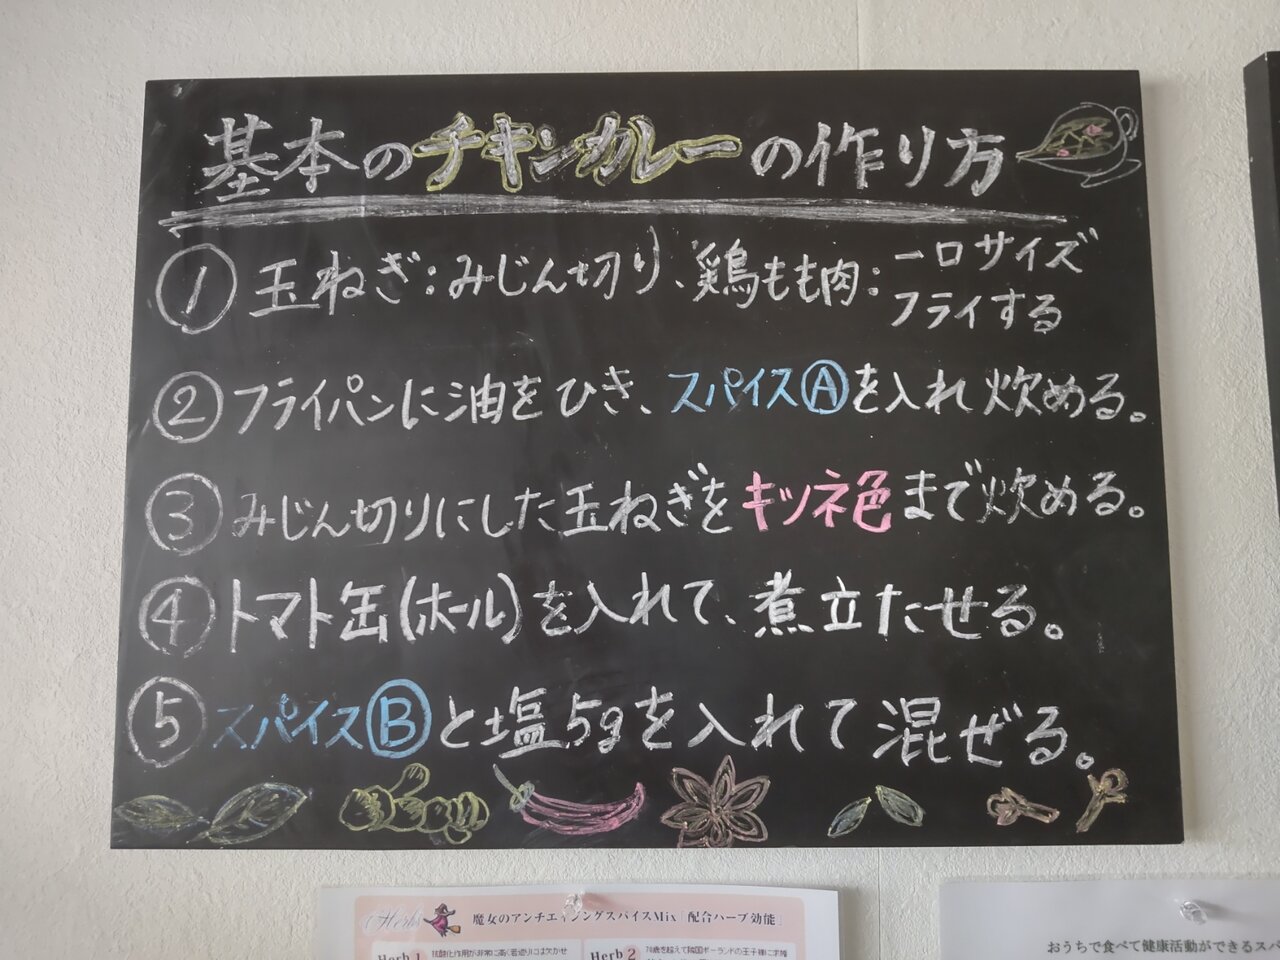 基本のチキンカレーの作り方
① 玉ねぎ:みじん切り、鶏もも肉:一口サイズ
フライする
② フライパンに油をひき、スパイスⒶを入れ炒める。
③ みじん切りにした玉ねぎをキツネ色まで炒める。
④ トマト缶(ホール)を入れて、煮立たせる。
⑤ スパイスⒷと塩5gを入れて混ぜる。
Herbs
魔女のアンチエイジングスパイスMix「配合ハーブ効能」
Herb 1
抗酸化作用が非常に高く若返りには欠かせ
Herb 2
70歳を超えて隣国ポーランドの王子様に求婚
おうちで食べて健康活動ができるスパ